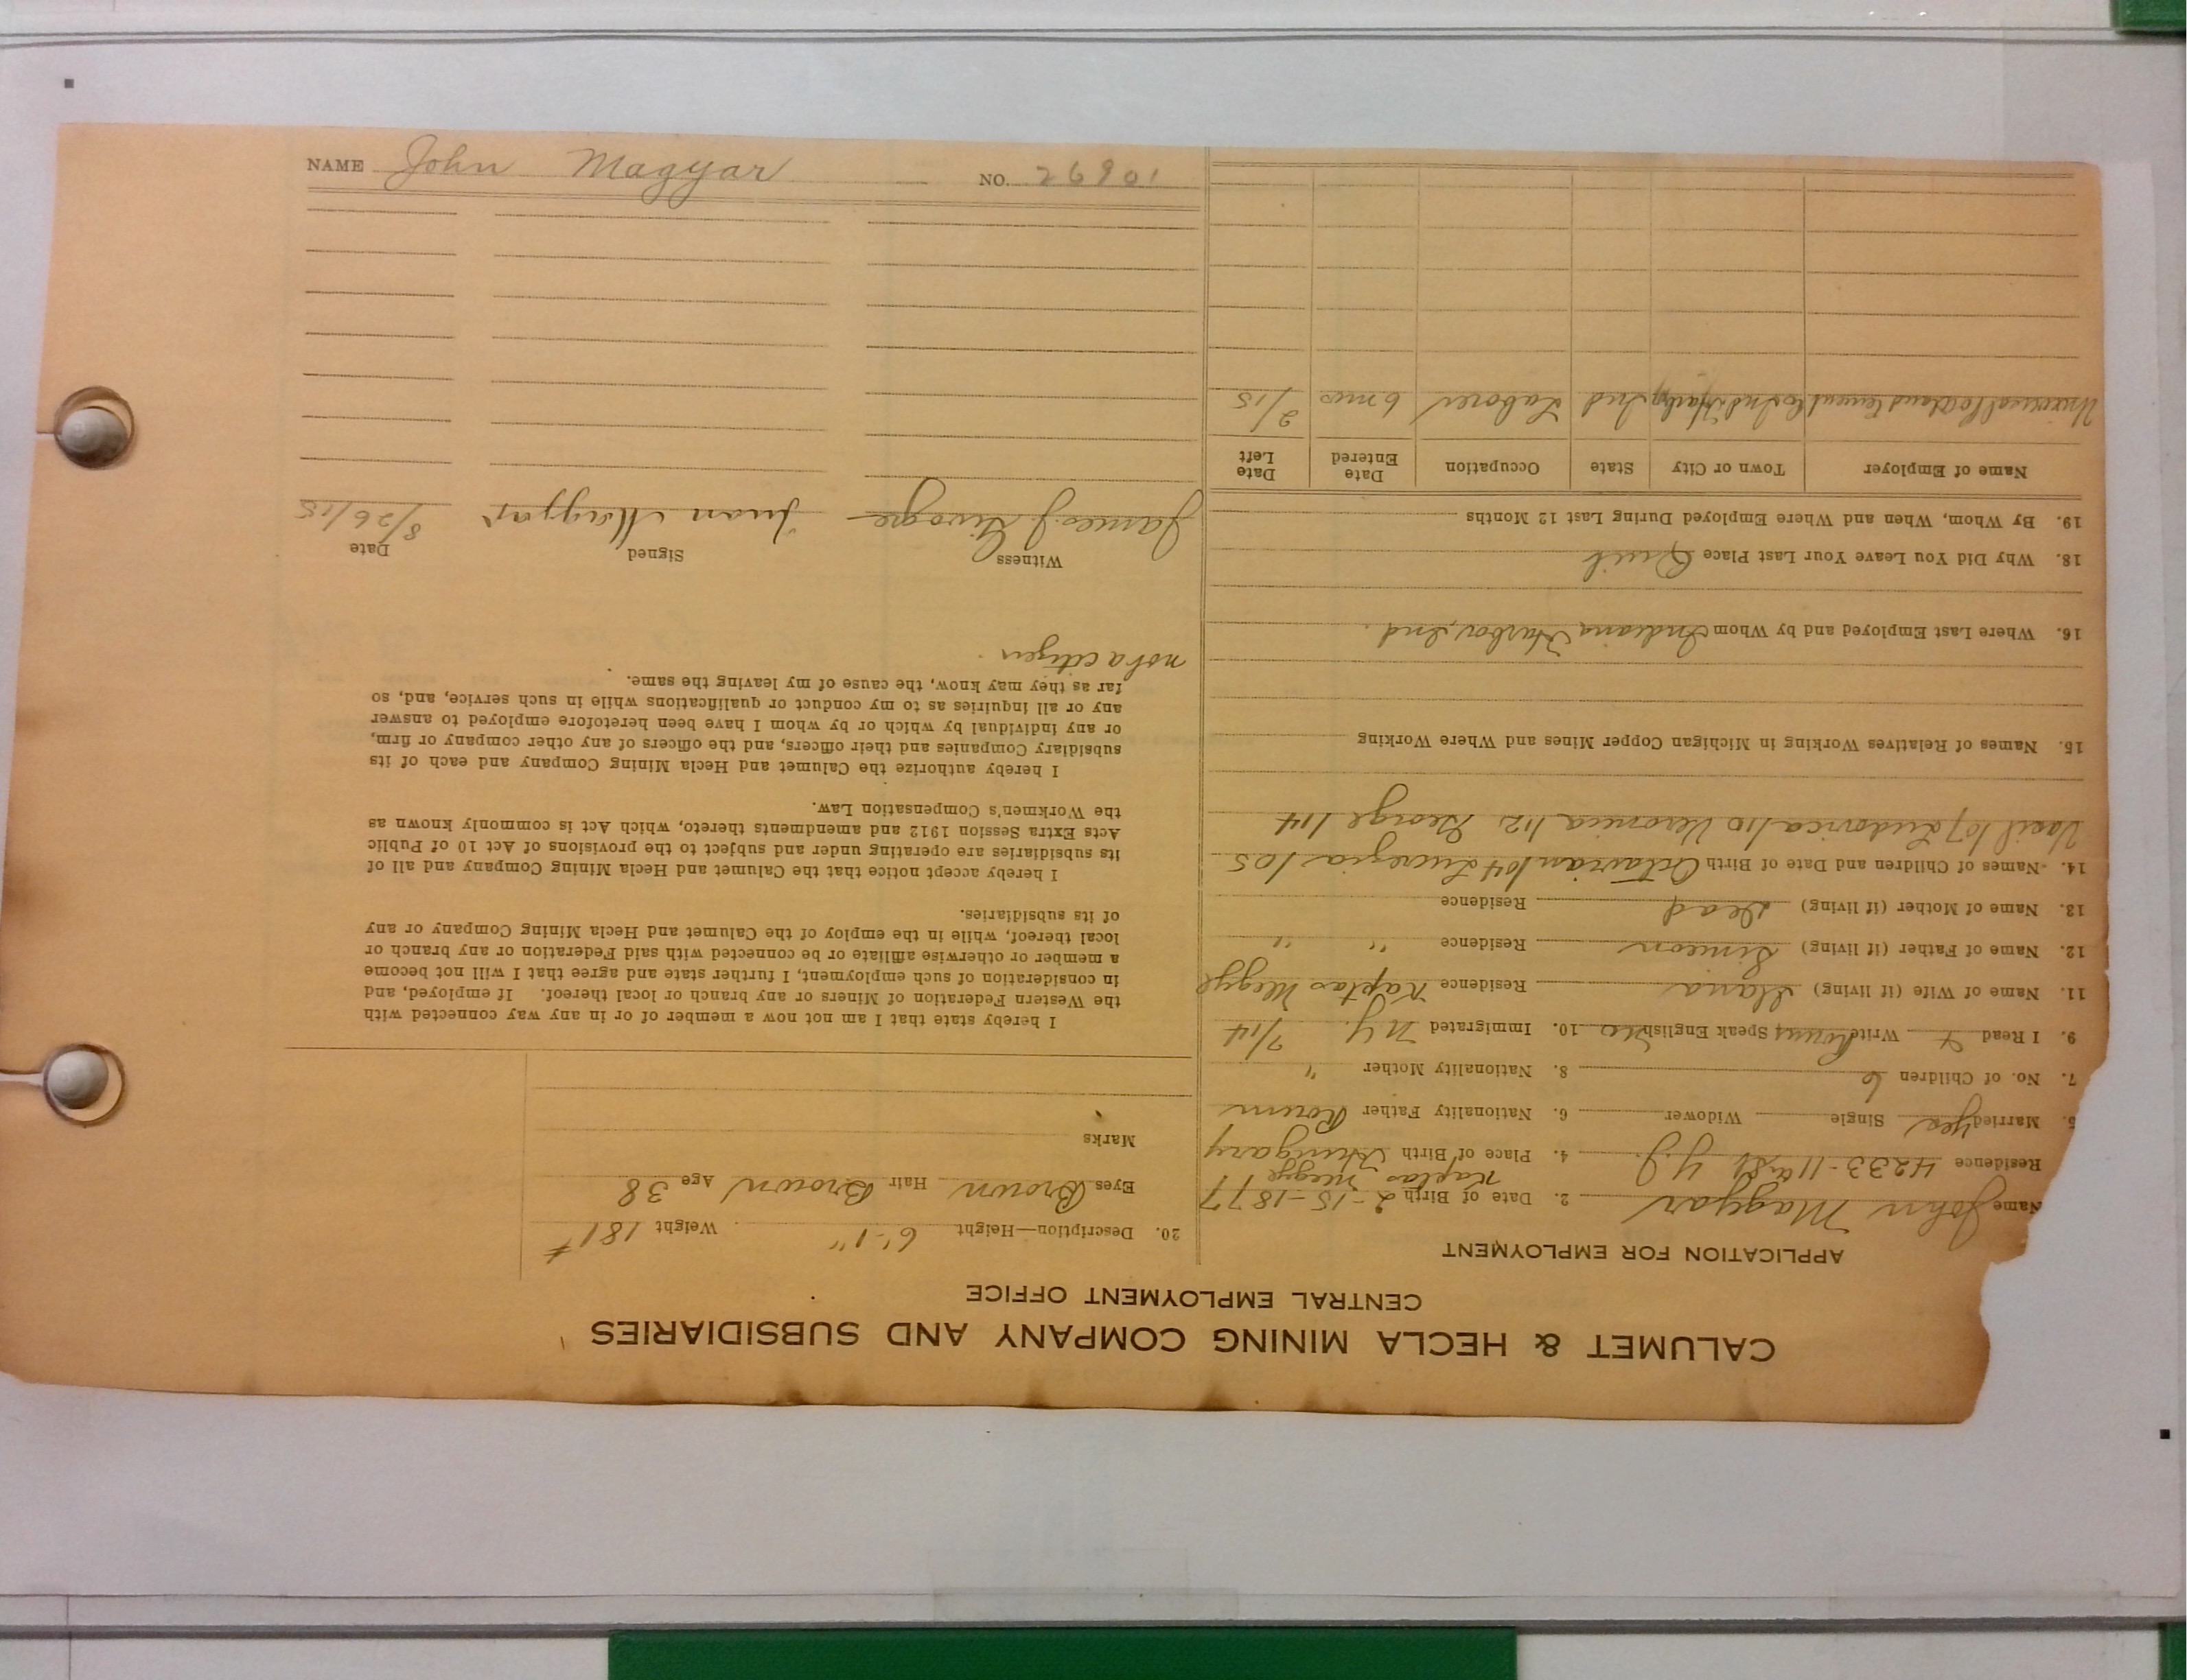 CALUMET & HECLA MINING COMPANY AND SUBSIDIARIES
CENTRAL EMPLOYMENT OFFICE
APPLICATION FOR EMPLOYMENT
Name John Magyar 2. Date of Birth 2-15-1877
Kaplas Megye
Residence 4233-11th St Y.J. 4. Place of Birth Hungary
5. Married yes Single Widower 6. Nationality Father Roum
7. No. of Children 6 8. Nationality Mother "
9. I Read & Write Roum Speak English No 10. Immigrated N.Y. 7/14
11. Name of Wife (if living) Maria Residence Kaplas Megye
12. Name of Father (if living) Simeon Residence " "
13. Name of Mother (if living) Dead Residence
14. Names of Children and Date of Birth Octavian 1/04 Lucregia 1/05
Vasil 1/07 Ludovica 1/10 Veronica 1/12 George 1/14
15. Names of Relatives Working in Michigan Copper Mines and Where Working
16. Where Last Employed and by Whom Indiana Harbor, Ind.
18. Why Did You Leave Your Last Place Quit
19. By Whom, When and Where Employed During Last 12 Months
Name of Employer Town or City State Occupation Date Entered Date Left
Universal Portland Cement Co Ind Harbor Ind Laborer 6 mos 2/15
20. Description—Height 6'-1" Weight 181#
Eyes Brown Hair Brown Age 38
Marks
I hereby state that I am not now a member of or in any way connected with
the Western Federation of Miners or any branch or local thereof. If employed, and
in consideration of such employment, I further state and agree that I will not become
a member or otherwise affiliate or be connected with said Federation or any branch or
local thereof, while in the employ of the Calumet and Hecla Mining Company or any
of its subsidiaries.
I hereby accept notice that the Calumet and Hecla Mining Company and all of
its subsidiaries are operating under and subject to the provisions of Act 10 of Public
Acts Extra Session 1912 and amendments thereto, which Act is commonly known as
the Workmen's Compensation Law.
I hereby authorize the Calumet and Hecla Mining Company and each of its
subsidiary Companies and their officers, and the officers of any other company or firm,
or any individual by which or by whom I have been heretofore employed to answer
any or all inquiries as to my conduct or qualifications while in such service, and, so
far as they may know, the cause of my leaving the same.
not a citizen
Witness Signed Date
James J. Iuon Magyar 8/26/15
NAME John Magyar NO. 26901